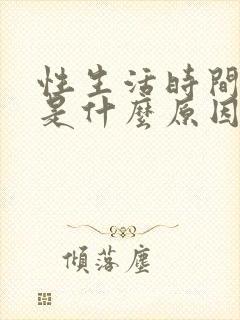 性生活時間
是什麼原因
傾落塵